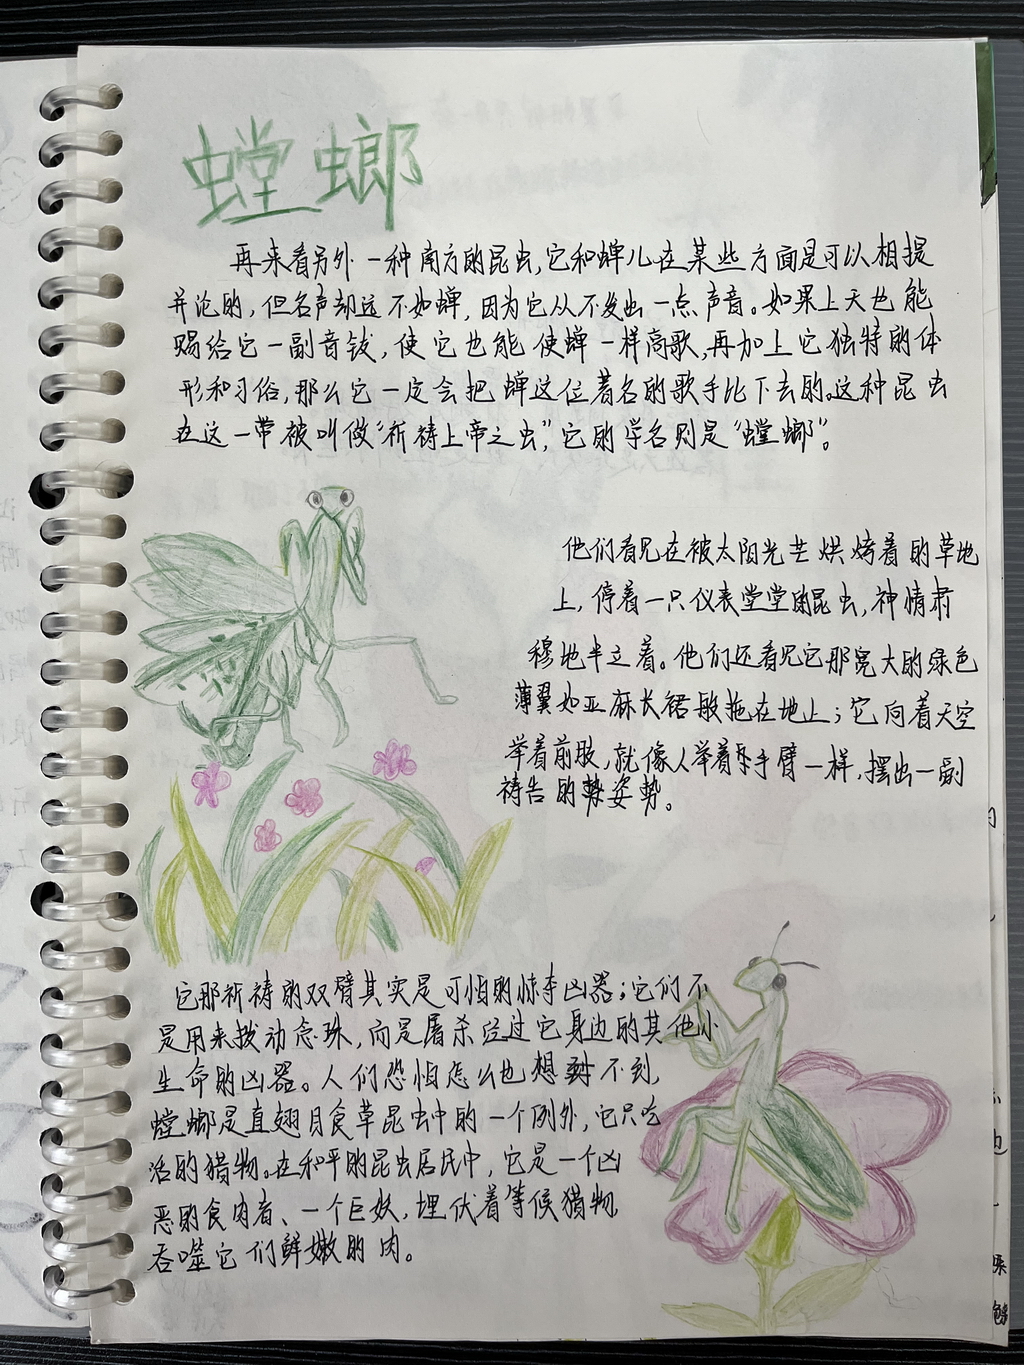 螳螂
再来看另外一种南方的昆虫,它和蝉儿在某些方面是可以相提
并论的,但名声却远不如蝉,因为它从不发出一点声音。如果上天也能
赐给它一副音钹,使它也能使蝉一样高歌,再加上它独特的体
形和习俗,那么它一定会把蝉这位著名的歌手比下去的。这种昆虫
在这一带被叫做“祈祷上帝之虫”,它的学名则是“螳螂”。
他们看见在被太阳光芒烘烤着的草地
上,停着一只仪表堂堂的昆虫,神情肃
穆地半立着。他们还看见它那宽大的绿色
薄翼如亚麻长裙般拖在地上;它向着天空
举着前肢,就像人举着手臂一样,摆出一副
祷告的姿势。
它那祈祷的双臂其实是可怕的掠夺凶器;它们不
是用来拨动念珠,而是屠杀经过它身边的其他小
生命的凶器。人们恐怕怎么也想不到,
螳螂是直翅目食草昆虫中的一个例外,它只吃
活的猎物。在和平的昆虫居民中,它是一个凶
恶的食肉者、一个巨妖,埋伏着等候猎物,
吞噬它们鲜嫩的肉。